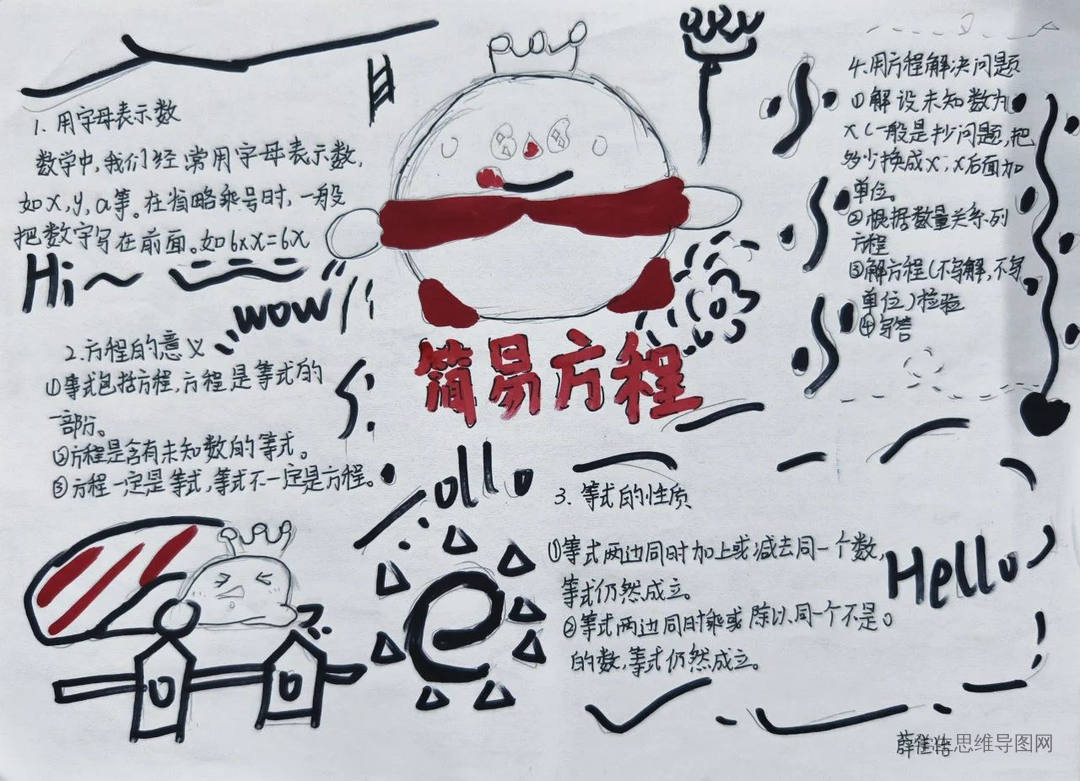 1. 用字母表示数
数学中,我们经常用字母表示数,
如x,y,a等。在省略乘号时,一般
把数字写在前面。如6×x=6x
Hi~
wow
2.方程的意义
①等式包括方程,方程是等式的
一部分。
②方程是含有未知数的等式。
③方程一定是等式,等式不一定是方程。
简易方程
4.用方程解决问题
①解设未知数为
x(一般是抄问题,把
多少换成x,x后面加
单位。
②根据数量关系列
方程
③解方程(不写解,不写
单位)检验
④写答
ollo
e
3. 等式的性质
①等式两边同时加上或减去同一个数,
等式仍然成立。
②等式两边同时乘或除以同一个不是0
的数,等式仍然成立。
Hello
思维导图网